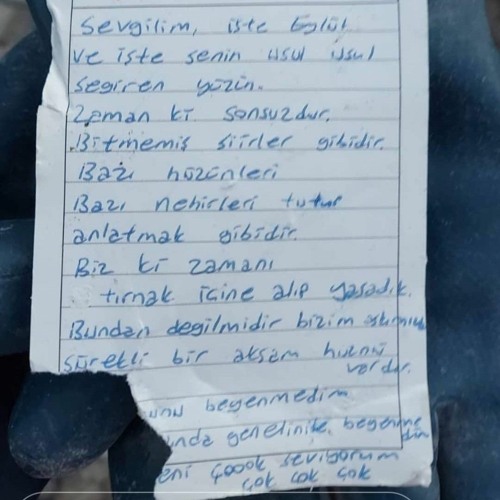 Sevgilim, işte Eylül
ve işte senin usul usul
seğiren yüzün.
Zaman ki sonsuzdur.
Bitmemiş şiirler gibidir.
Bazı hüzünleri
Bazı nehirleri tutup
anlatmak gibidir.
Biz ki zamanı
tırnak içine alıp yaşadık.
Bundan değilmidir bizim
sürekli bir akşam hüznü
vardır.
beğenmedim
genelinide beğenme
dim
eni çoook seviyorum
çok çok çok